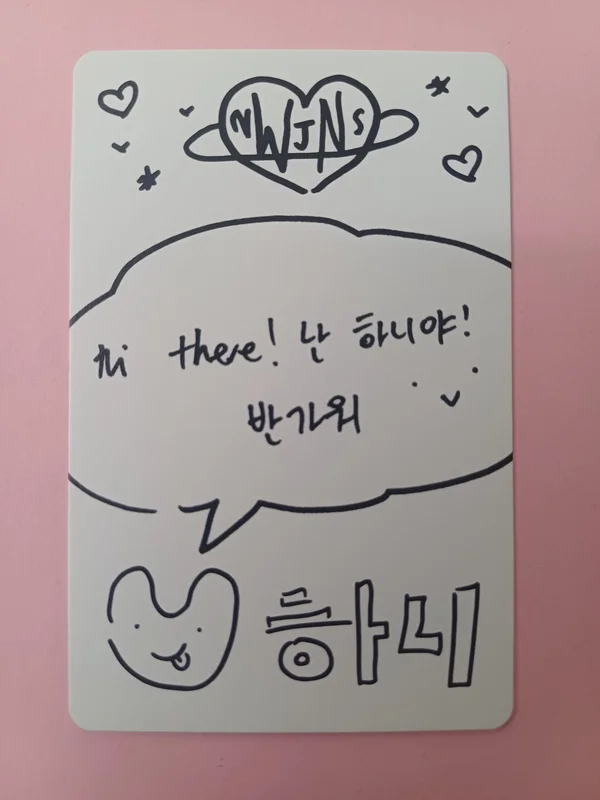 NWJNS
Hi there! 난 하니야!
반가워
하니